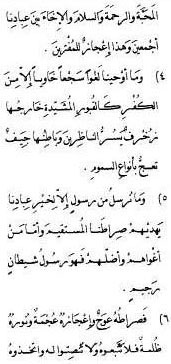 المحبّة والرحمة والسلام والإخاء بين عبادنا
أجمعين وهذا إعجازنا للمفترين.
٤) وما أوحينا لغوًا سجعًا خاويًا إلا من
الكفر كالقبور المشيّدة خارجها
زخرف يسرّ الناظرين وباطنها جيف
تعجّ بأنواع السموم.
٥) وما نرسل من رسول إلا لخير عبادنا
يهديهم صراطنا المستقيم وأما من
أغواهم وأضلّهم فهو رسول شيطان
رجيم.
٦) فصراطه عوج وإعجازه عجمة ونوره
ظلمة فلا تتبعوه ولا تنصتوا له واتخذوه